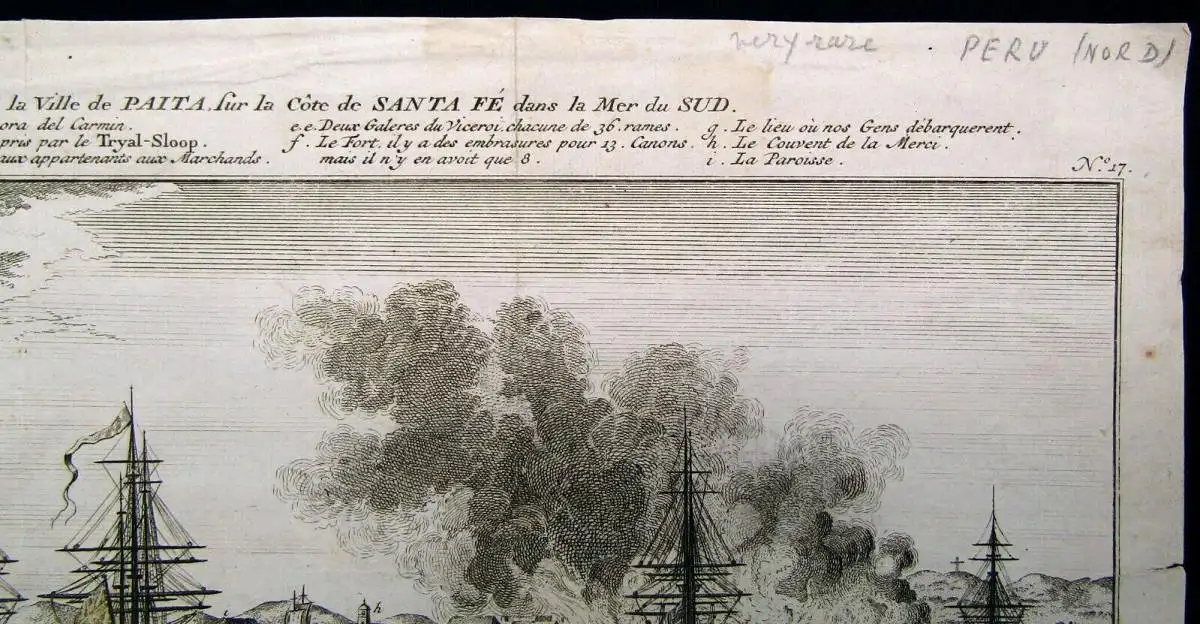 very rare PERU (NORD)
la Ville de PAITA, sur la Côte de SANTA FÉ dans la Mer du SUD.
ora del Carmin.
pris par le Tryal-Sloop.
aux appartenants aux Marchands.
e.e. Deux Galeres du Viceroi, chacune de 36. rames.
f. Le Fort, il y a des embrasures pour 13. Canons,
mais il n'y en avoit que 8.
g. Le lieu où nos Gens débarquerent.
h. Le Couvent de la Merci.
i. La Paroisse.
N.º 17.
i
h